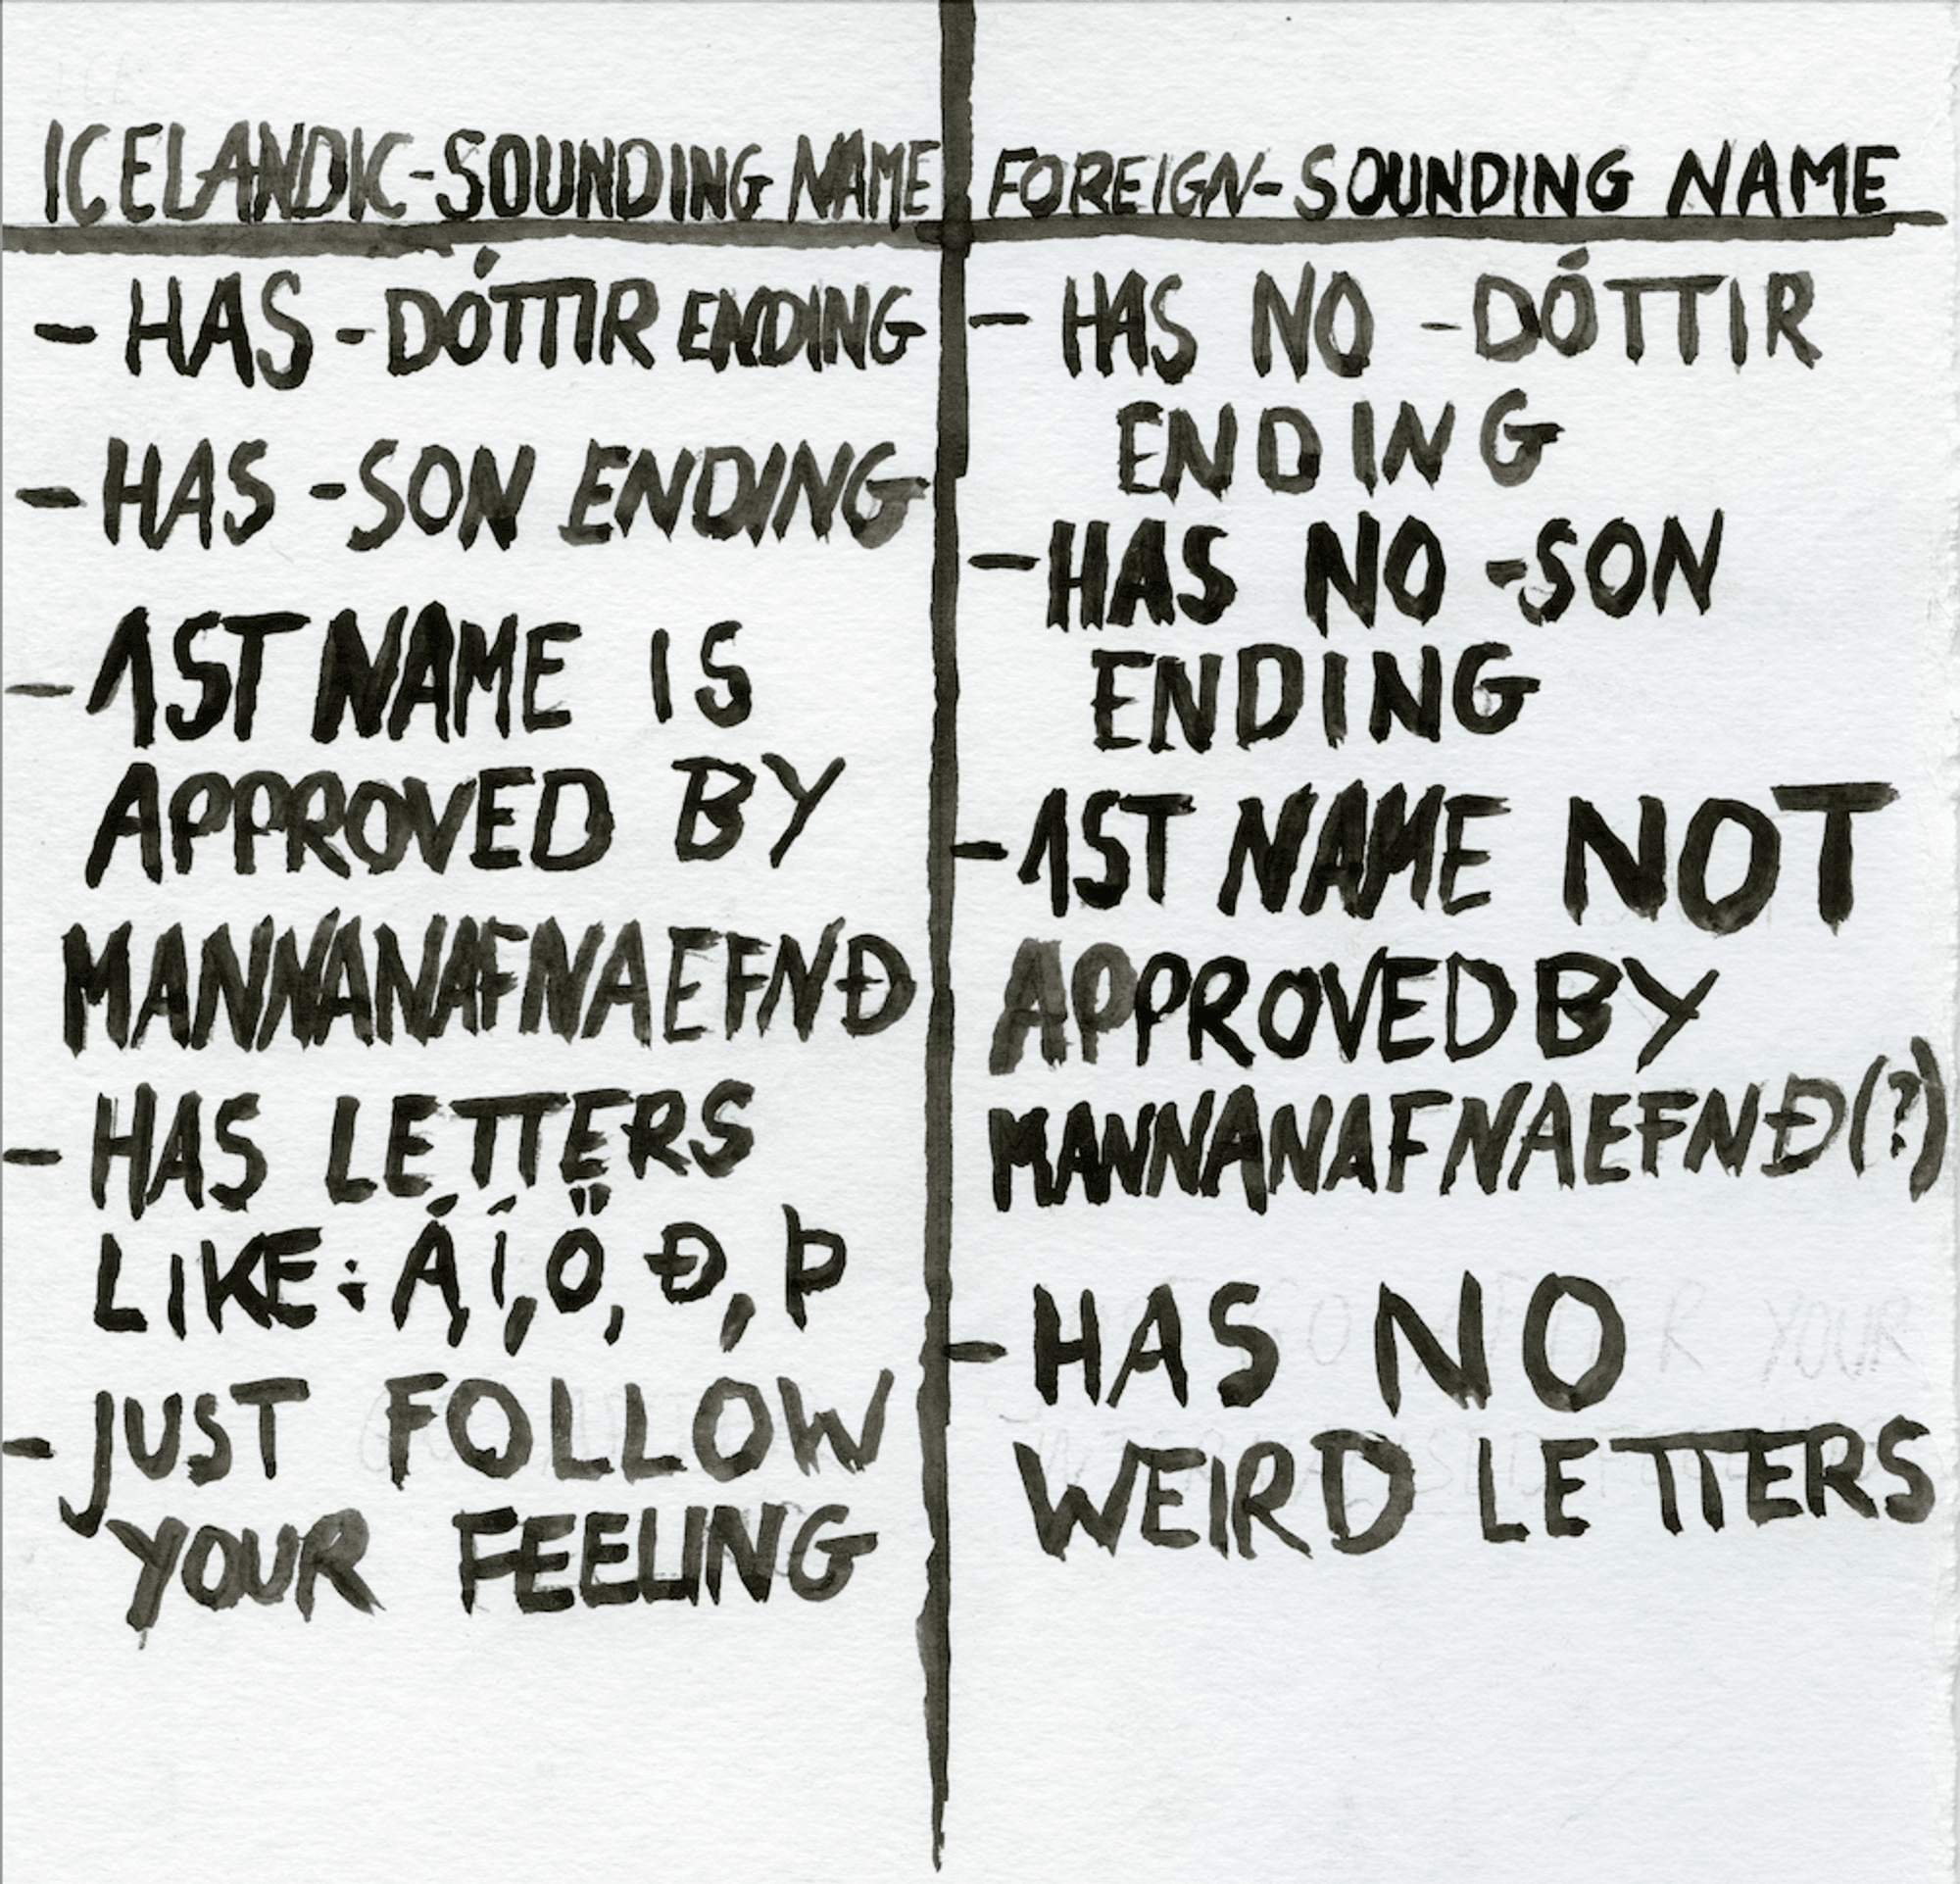 ICELANDIC-SOUNDING NAME
- HAS -DÓTTIR ENDING
- HAS -SON ENDING
- 1ST NAME IS
APPROVED BY
MANNANAFNAEFNÐ
- HAS LETTERS
LIKE: Á, Í, Ö, Ð, Þ
- JUST FOLLOW
YOUR FEELING
FOREIGN-SOUNDING NAME
- HAS NO -DÓTTIR
ENDING
- HAS NO -SON
ENDING
- 1ST NAME NOT
APPROVED BY
MANNANAFNAEFNÐ(?)
- HAS NO
WEIRD LETTERS